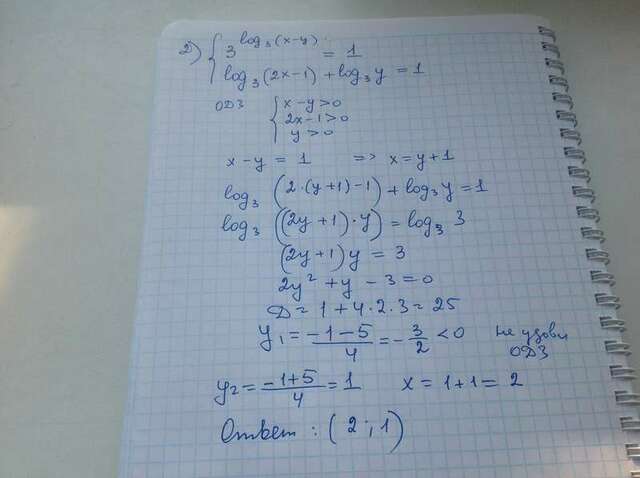 2) { 3^log₃(x-y) = 1
log₃(2x-1) + log₃y = 1
ОДЗ { x-y>0
2x-1>0
y>0
x-y = 1 => x=y+1
log₃(2·(y+1)-1)+log₃y=1
log₃((2y+1)·y)=log₃ 3
(2y+1)y = 3
2y²+y-3=0
D=1+4·2·3=25
y₁=(-1-5)/4=-3/2<0 не удовл ОДЗ
y₂=(-1+5)/4=1 x=1+1=2
Ответ: (2;1)